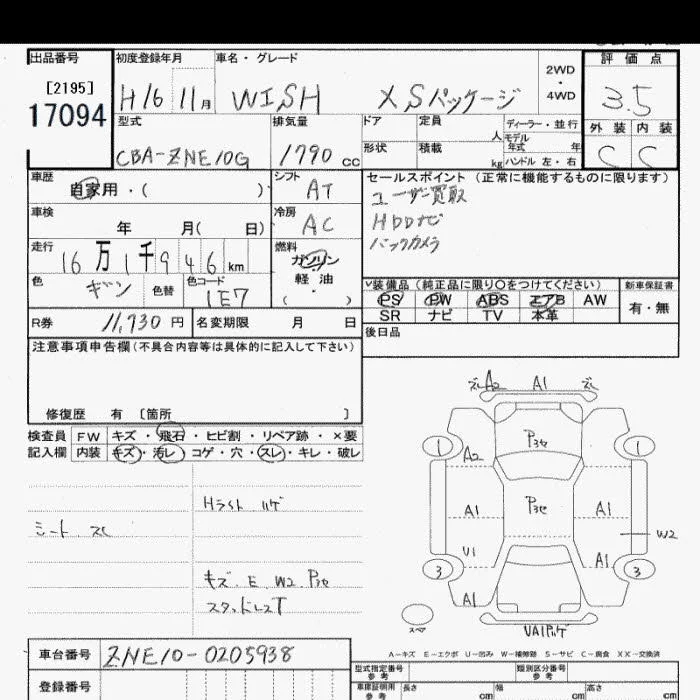 出品番号 初度登録年月 車名・グレード 評価点
[2195]
17094 H16 11月 WISH X Sパッケージ 2WD・4WD 3.5
型式 排気量 ドア 定員 人 ディーラー・並行 外装 内装
モデル年式 年
CBA-ZNE10G 1790 cc 形状 積載 kg ハンドル 左・右 C C
車歴 シフト セールスポイント (正常に機能するものに限ります)
自家用・( ) AT ユーザー買取
車検 冷房 HDDナビ
年 月( 日) AC バックカメラ
走行 燃料
16万1千946km ガソリン
軽油
( ・ )
色 色替 色コード
ギン 1E7
装備品 (純正品に限り○をつけてください) 新車保証書
PS PW ABS エアB AW 有・無
SR ナビ TV 本革
R券 11,730円 名変期限 月 日 後日品
注意事項申告欄(不具合内容等は具体的に記入して下さい)
修復歴 有 [箇所 ]
検査員 FW キズ・飛石・ヒビ割・リペア跡・×要
記入欄 内装 キズ・汚レ・コゲ・穴・スレ・キレ・破レ
Hライト ハゲ
シート スレ
キズ E W2 P3セ
スタッドレスT
ズレ A2 A1 ズレ
1 P3セ 1
A2
A1 P3セ A1
W2
U1 A1
3 3
A1
スペア UA1ハゲ
A-キズ E-エクボ U-凹み W-補修跡 S-サビ C-腐食 XX-交換済
車台番号 ZNE10-0205938
登録番号
型式指定番号 参考 類別区分番号 参考
車庫証明用 参考 長さ cm 幅 cm 高さ cm